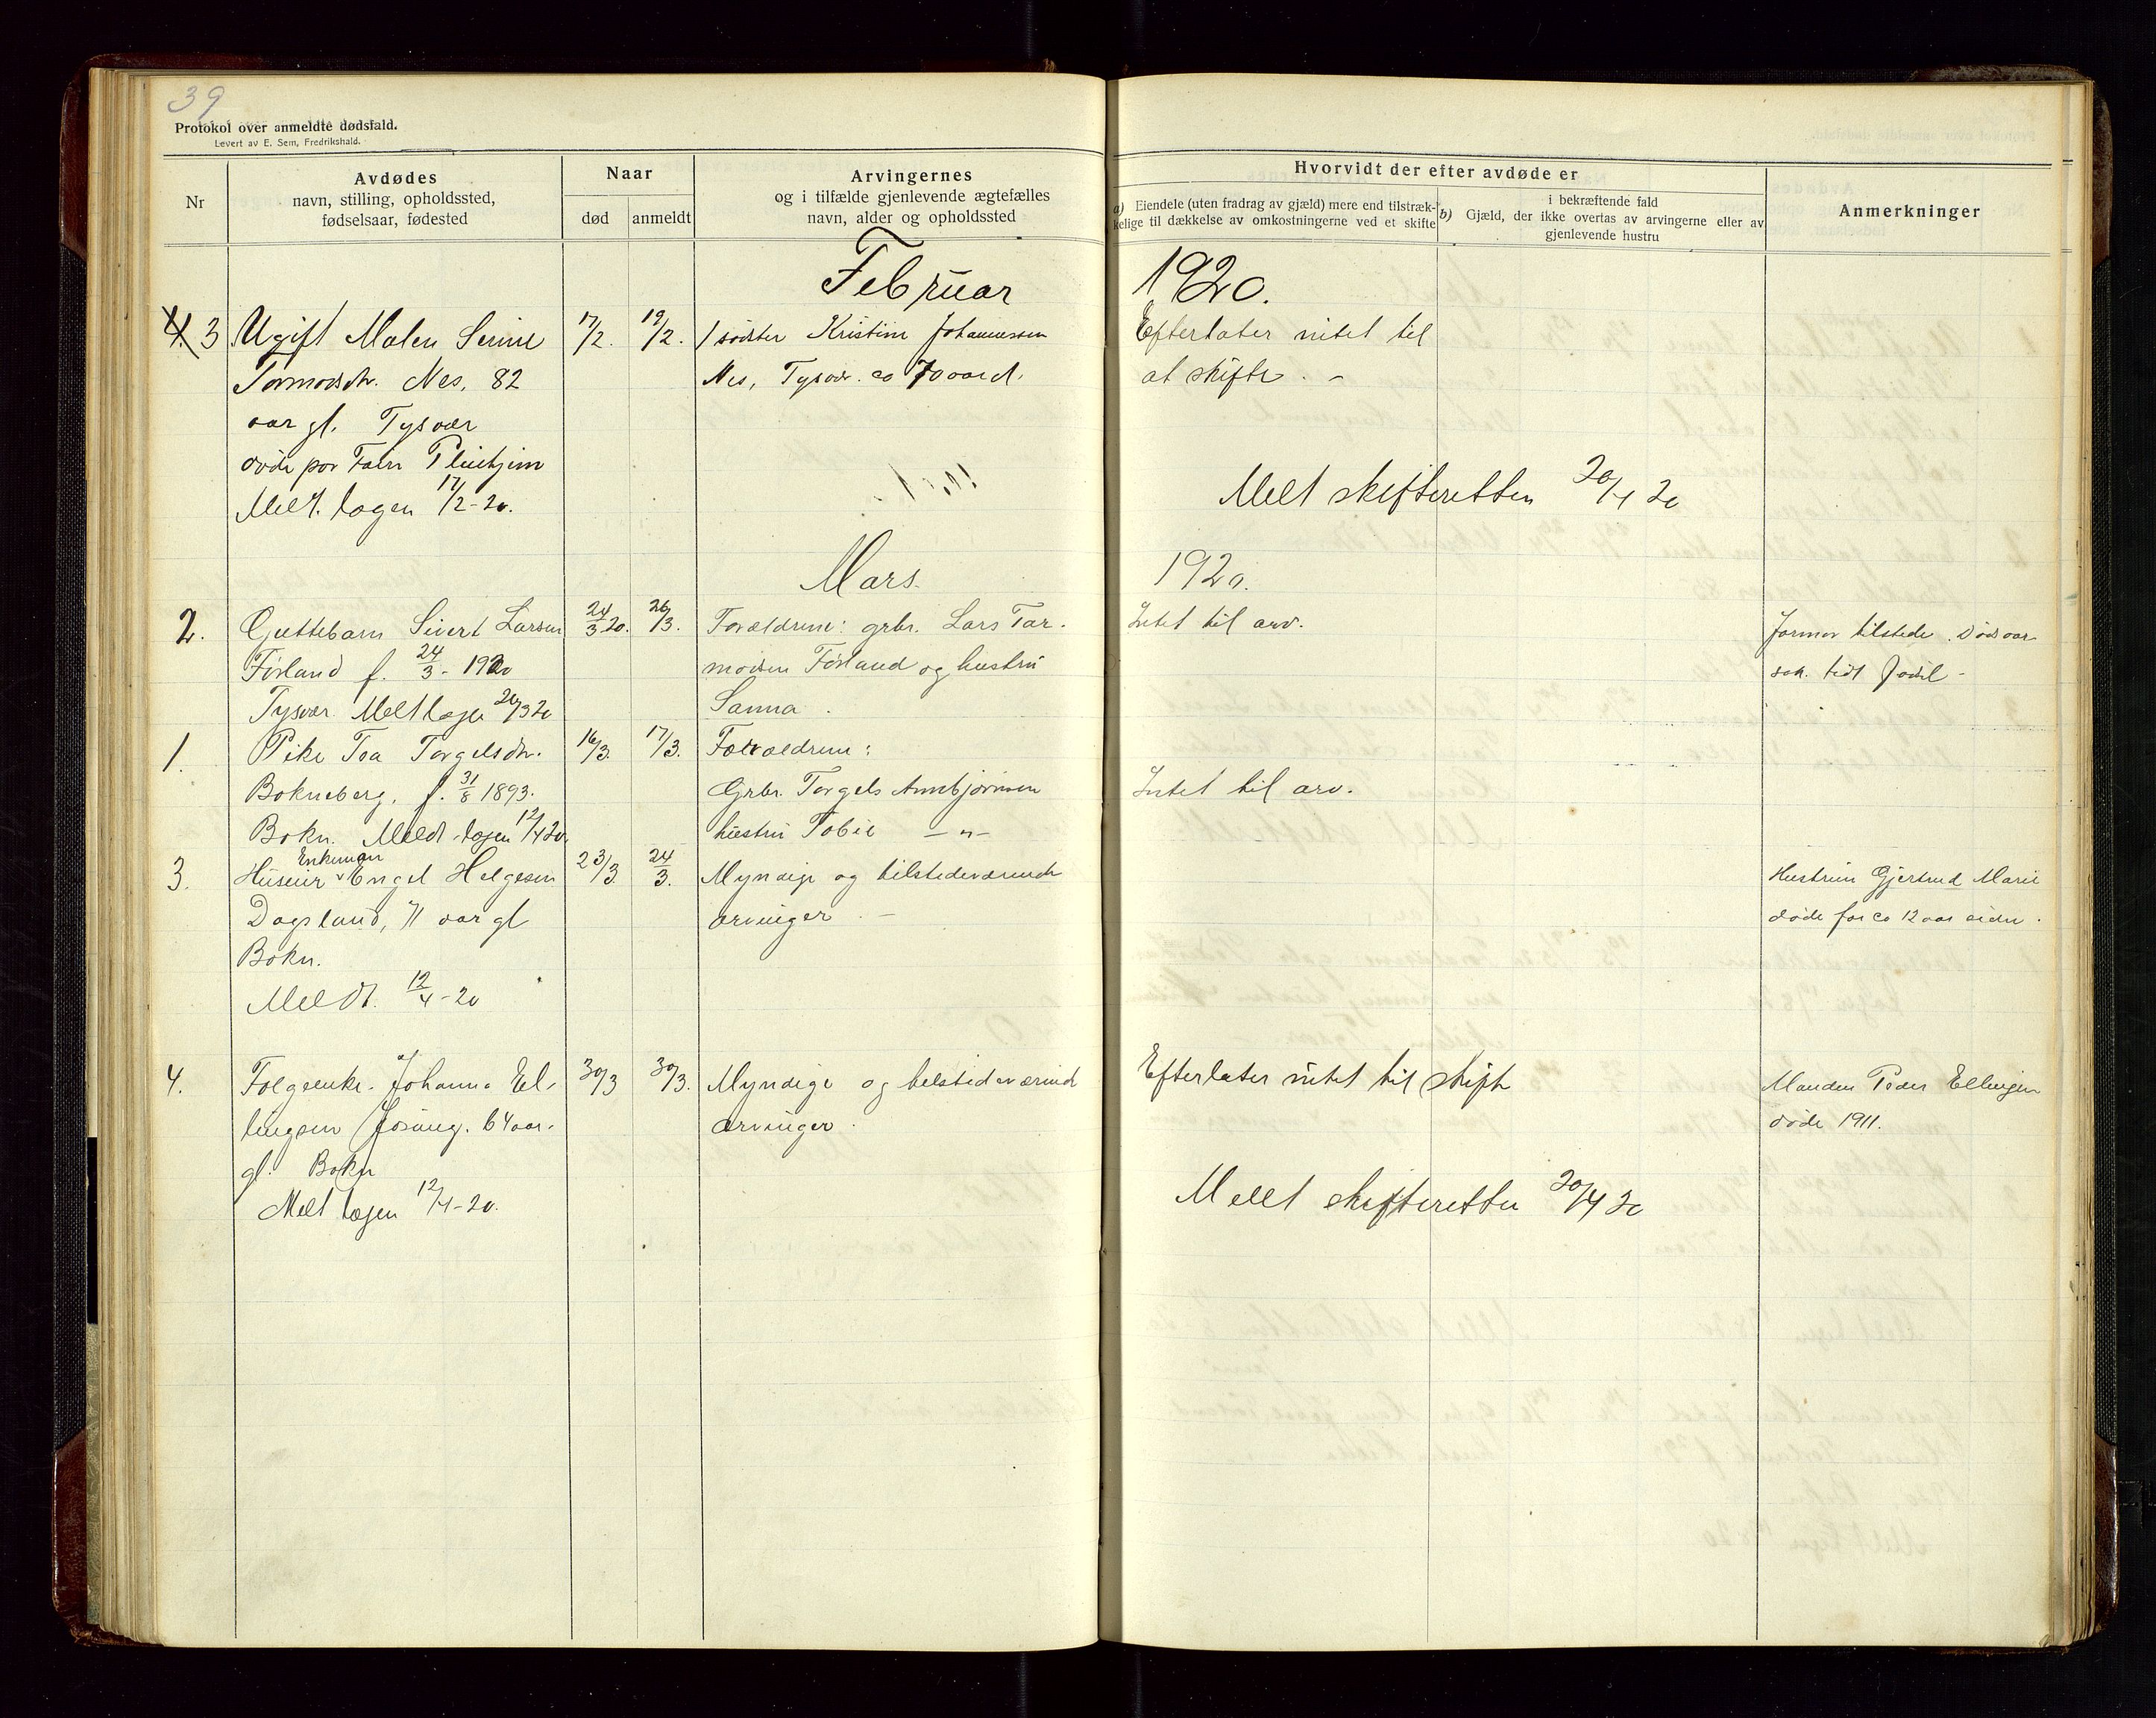 39
Protokol over anmeldte dødsfald.
Levert av E. Sem, Fredrikshald.
Nr
Avdødes
navn, stilling, opholdssted,
fødselsaar, fødested
Naar
død
anmeldt
Arvingernes
og i tilfælde gjenlevende ægtefælles
navn, alder og opholdssted
Hvorvidt der efter avdøde er
a) Eiendele (uten fradrag av gjæld) mere end tilstræk-
kelige til dækkelse av omkostningerne ved et skifte
b)
i bekræftende fald
Gjæld, der ikke overtas av arvingerne eller av
gjenlevende hustru
Anmerkninger
Februar 1920.
4. 3
Ugift Malen Serine
Tormodsdtr. Nes, 82
aar gl. Tysvær
døde paa Pleiehjem
Melt. lagen 17/2-20.
17/2.
19/2.
1 søster Kristine Johannessen
Nes, Tysvær. ca 70 aar
Efterlater intet til
at skifte. -
Melt skifteretten 20/4 20
Mars. 1920.
2.
Guttebarn Sivert Larsen
Førland f. 24/3 - 1920
Tysvær Melt lagen 20
24/3 20.
26/3.
Forældrene: grbr. Lars Tor-
modsen Førland og hustru
Sanna.
Intet til arv.
Jormor tilstede. Dødsaar-
sak. tidl fødsel -
1.
Pike Tea Torgelsdtr.
Bokneberg. f. 31/8 1893.
Bokn. Meldt lagen 12/4 20.
16/3.
17/3.
Forældrene:
Grbr. Torgels Annbjørnsen
hustru Tobie - " -
Intet til arv.
3.
Enkeman
Huseier Engel Helgesen
Dagsland, 71 aar gl
Bokn.
Meldt. 12/4-20
23/3.
24/3.
Myndige og tilstedeværende
arvinger. -
Hustruen Gjertrud Marie
døde for ca 12 aar siden.
4.
Folgeenke. Johanna El-
lingsen Jøsang. 64 aar.
gl. Bokn
Melt lagen 12/4-20.
30/3
30/3.
Myndige og tilstedeværende
arvinger.
Efterlater intet til skifte
Manden Peder Ellingsen
døde 1911.
Melt skifteretten 20/4 20